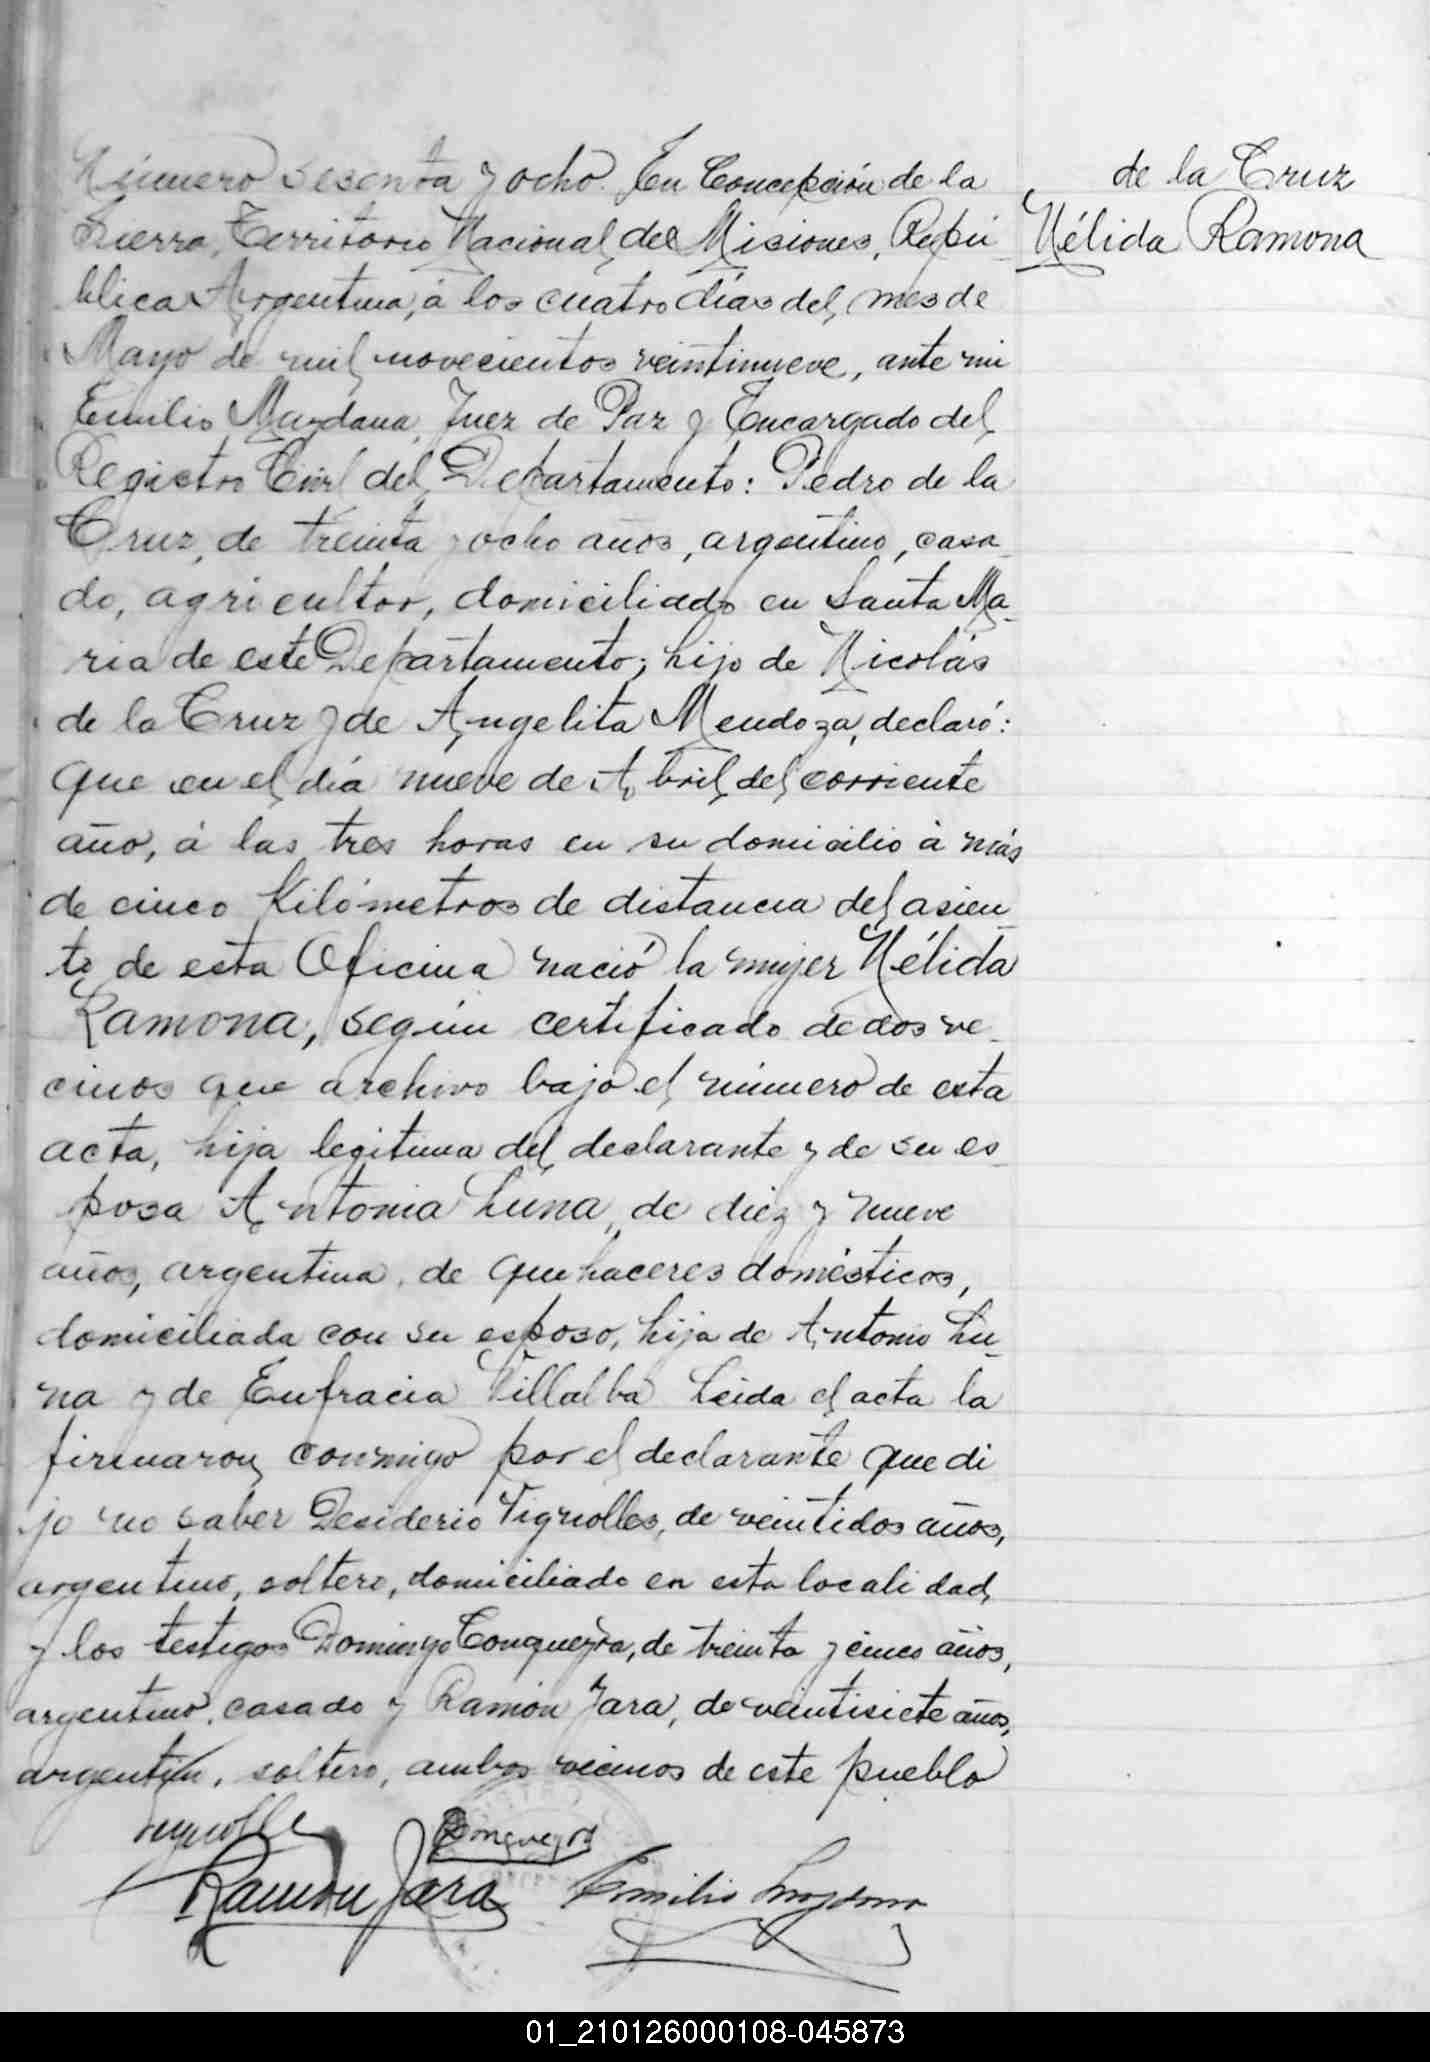 de la Cruz
Nélida Ramona
Número sesenta y ocho. En Concepción de la
Sierra, Territorio Nacional de Misiones, Repú
blica Argentina, á los cuatro días del mes de
Mayo de mil novecientos veintinueve, ante mi
Emilio Maydana, Juez de Paz y Encargado del
Registro Civil del Departamento: Pedro de la
Cruz, de treinta y ocho años, argentino, casa
do, agricultor, domiciliado en Santa Ma-
ria de este Departamento; hijo de Nicolás
de la Cruz y de Angelita Mendoza, declaró:
Que en el día nueve de Abril del corriente
año, á las tres horas en su domicilio á más
de cinco Kilómetros de distancia del asien-
to de esta Oficina nació la mujer Nélida
Ramona, según certificado de dos ve-
cinos que archivo bajo el número de esta
acta, hija legitima del declarante y de su es-
posa Antonia Luna, de diez y nueve
años, argentina, de quehaceres domésticos,
domiciliada con su esposo, hija de Antonio Lu-
na y de Eufracia Villalba Leida el acta la
firmaron conmigo por el declarante que di
jo no saber Desiderio Vignolles, de veintidos años,
argentino, soltero, domiciliado en esta localidad,
y los testigos Domingo Conqueyra, de treinta y cinco años,
argentino, casado y Ramón Jara, de veintisiete años,
argentin, soltero, ambos vecinos de este pueblo
Ramón Jara
Emilio
01_210126000108-045873